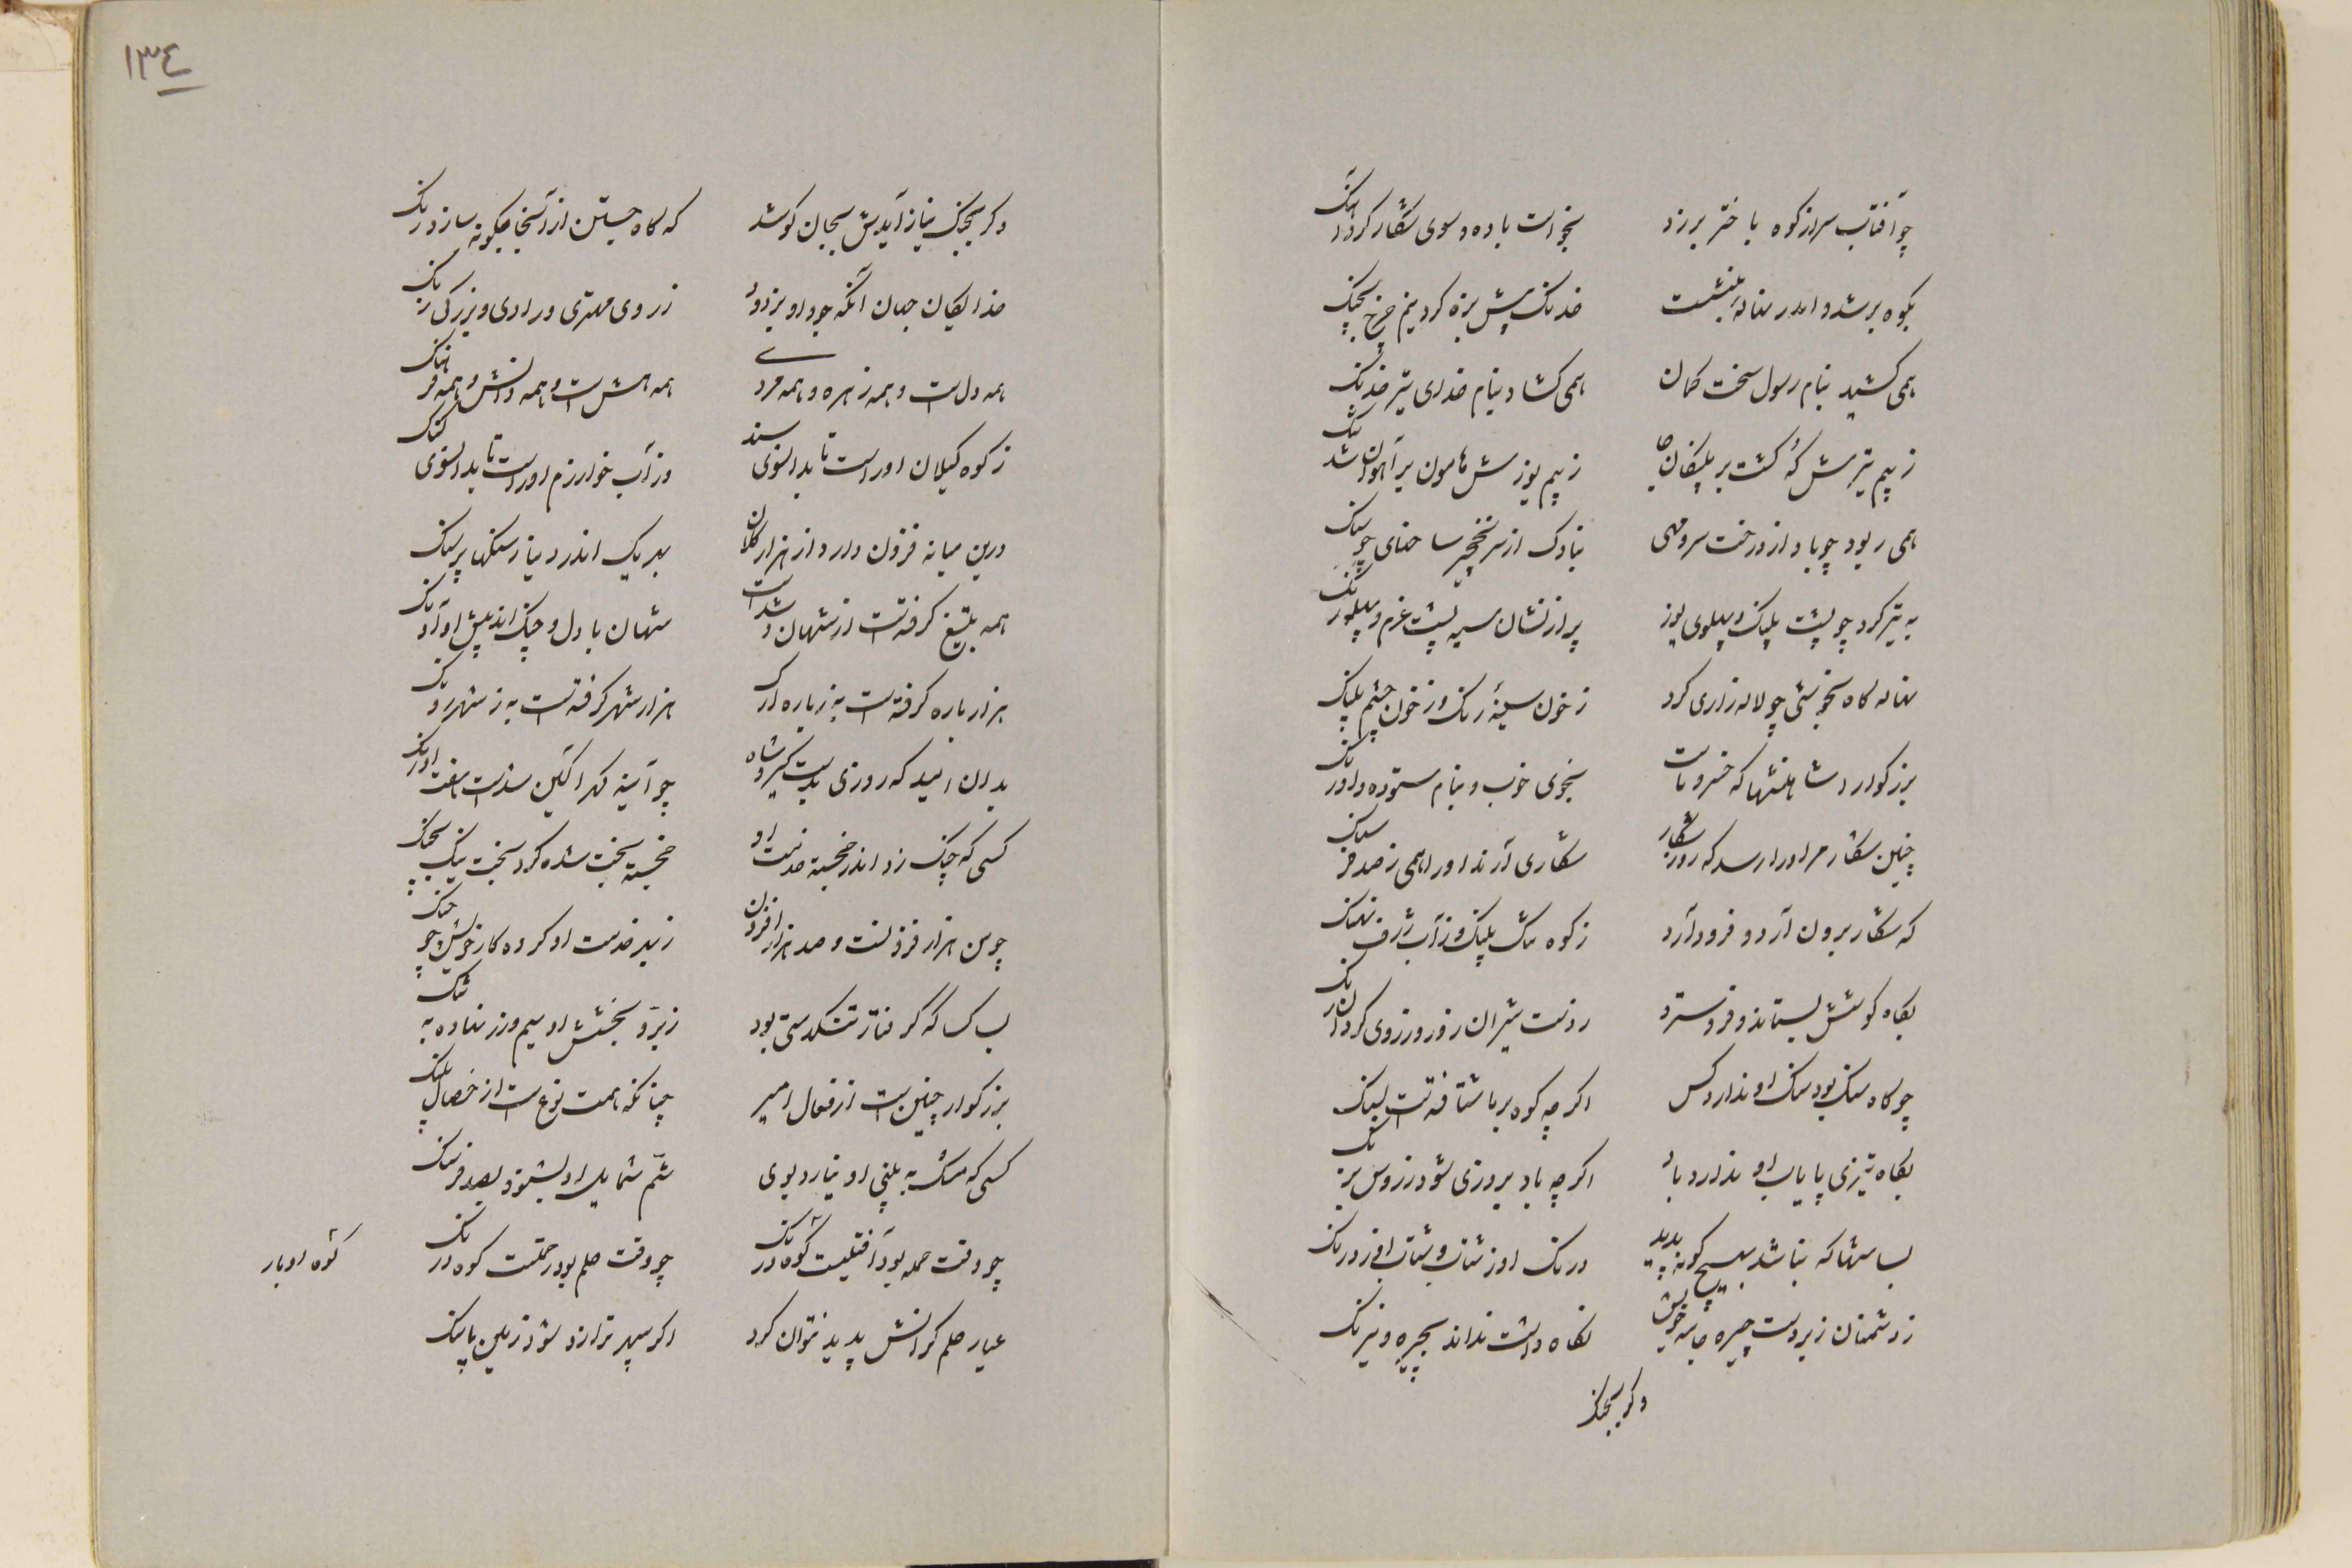 چو آفتاب سر از کوه باختر برزد بخواست باده و سوی شکار کرد آهنک
بکوه بر شد و اندر نهاله بنشست خدنک پیش بزه کرد نیم چرخ بچنک
همی کشید بنام رسول سخت کمان همی کشاد بنام خدای تیر خدنک
ز بیم تیرش که کشت بر پلنکان چاه ز بیم یوزش هامون بر آهوان شد تنک
همی ربود چو باد از درخت سرو سهی بناوک از سر نخجیر ساخهای چو سنک
به تیر کرد چو پشت پلنک و پهلوی یوز پر از نشان سیه پشت غرم و پهلو رنک
نهاله کاه بخوشی چو لاله زاری کرد ز خون سینهٔ رنک و ز خون چشم پلنک
بزرکوار شاهنشها که خسرو ماست بخوی خوب و بنام ستوده و اورنک
چنین شکار مر او را رسد که روز شکار شکاری آرند او را همی ز صد فرسنک
که شکار برون آرد و فرود آرد ز کوه تند پلنک و ز آب ژرف نهنک
بکاه کوشش بستاند و فرو سترد ز دست شیران زور و ز روی کردان رنک
چو کاه سنک بود سنک او ندارد کس اکرچه کوه بر ما شتافته است بسنک
بکاه تیزی پایاب او ندارد باد اکرچه باد بروزی شود ز روم بزنک
بسا شها که نباشد بهیچ کونه پدید درنک او ز شتاب و شتاب او ز درنک
ز دشمنان زبردست چیره خانه خویش نکاه داشت نداند بچیره و نیرنک
وکر بجنک
۱۳٤
وکر بجنک نیاز آیدش بجان کوشد که کاه جستن از آنجا چکونه سازد رنک
خدایکان جهان آنکه جود او بزدود ز روی مهتری و رادی و بزرکی زنک
همه دل است و همه زهره و همه مردی همه هش است و همه دانش و همه فرهنک
ز کوه کیلان او راست تا بدانسوی سند وز آب خوارزم او راست تا بدانسوی کنک
درین میانه فزون دارد از هزار کلات بهر یک اندر دینار تنکها بر تنک
همه بتیغ کرفته است از شهان و شده است شهان با دل و جنک اندر پیش او آونک
هزار باره کرفته است به ز باره ارک هزار شهر کرفته است به ز شهر زرنک
بدان امید که روزی بدست کیرد شاه چو آینه کهر آکین شده است هفت اورنک
کسی که چنک زد اندر خجسته خدمت او خجسته بخت شد و کرد بخت نیک بچنک
چو من هزار فزونست و صد هزار افزون ز بهر خدمت او کرده کار خویش چو چنک
بس کسا که کرفتار تنکدستی بود ز برّ و بخشش او سیم و زر نهاده به تنک
بزرکوار چنین است از فعال امیر چنانکه همت نوع است از خصال پلنک
کسی که مشک به بینی او نیارد بوی شم شمایل او بشنود بصد فرسنک
چو وقت حمله بود آفتیست کوه درنک چو وقت حلم بود رحمتست کوه درنک کوه اوبار
عیار حلم کرانش پدید نتوان کرد اکر سپهر ترازو شود زمین پاسنک